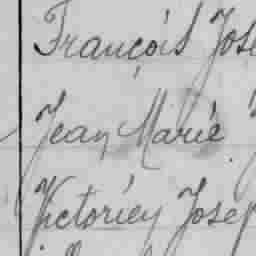 François Jose
Jean Marie J
Victorien Josep